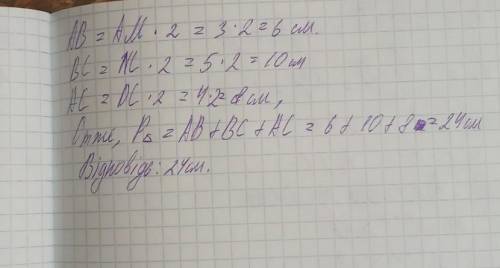 AB = AM · 2 = 3·2 = 6 см.
BC = NC · 2 = 5·2 = 10 см
AC = DC · 2 = 4·2 = 8 см,
Отже, P△ = AB + BC + AC = 6 + 10 + 8 = 24 см
Відповідь: 24 см.